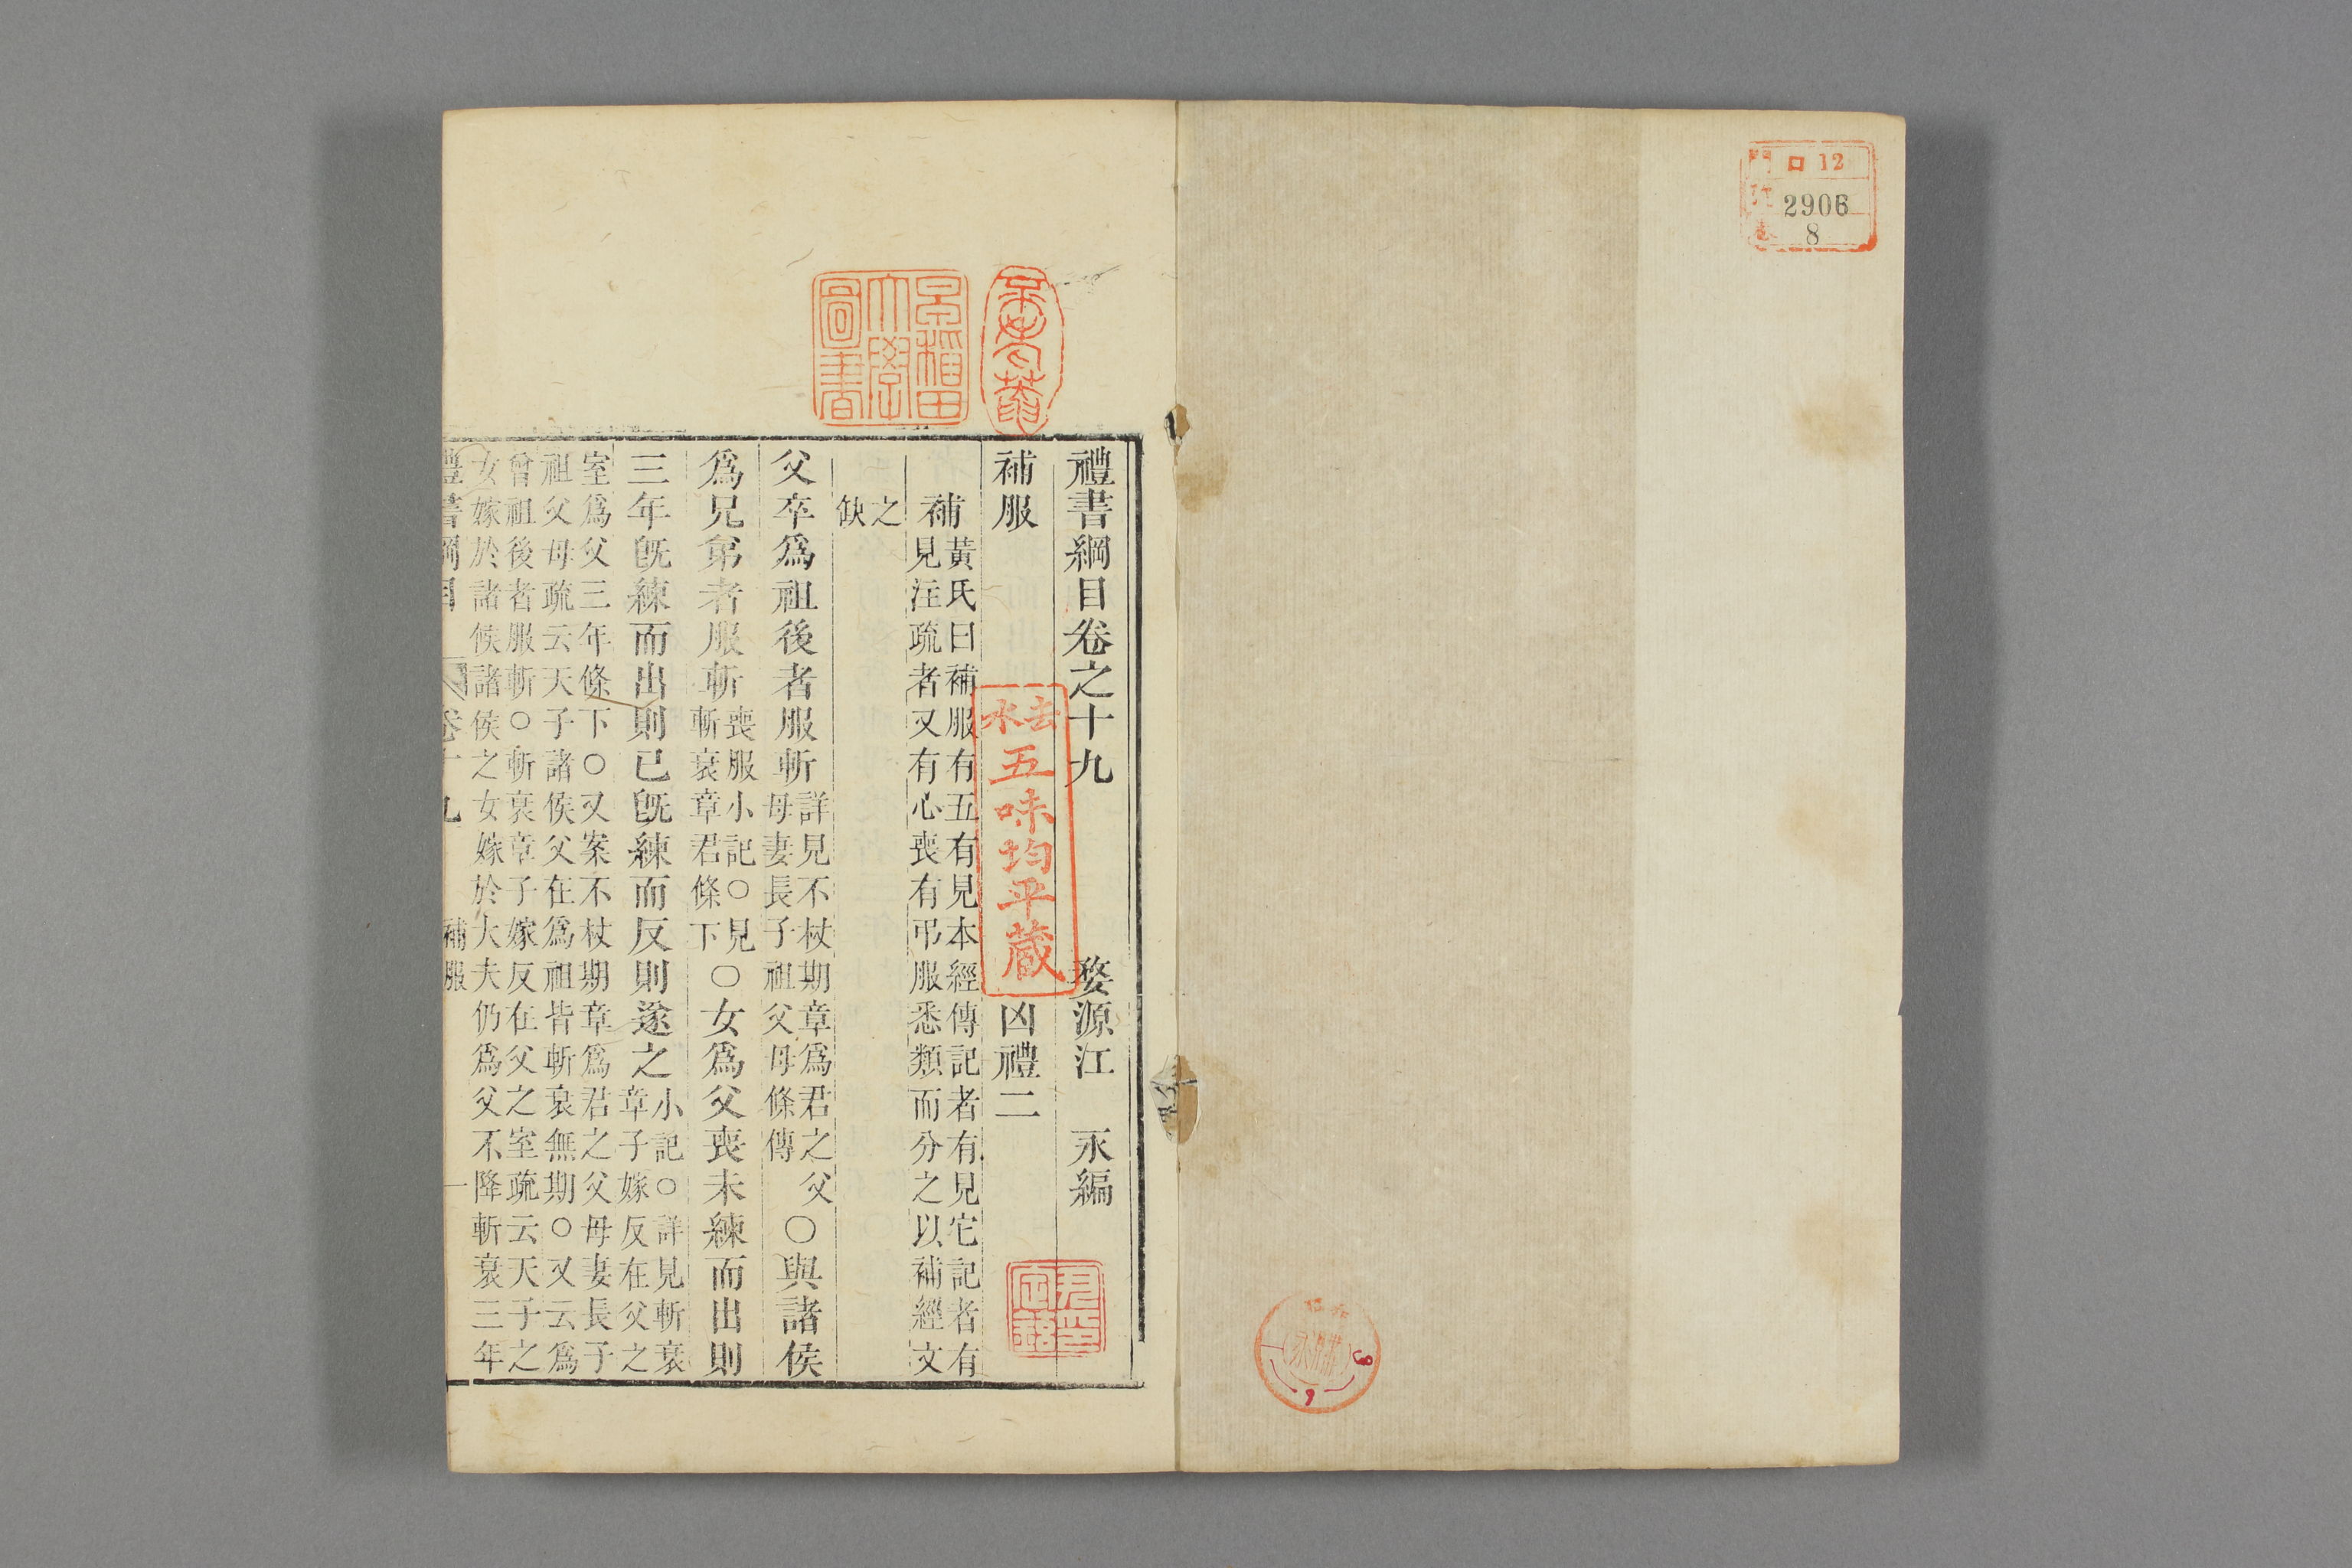 門 ロ12
号 2906
巻 8
禮書綱目卷之十九 婺源江 永編
補服 凶禮二
補 黃氏曰補服有五有見本經傳記者有見它記者有
見注疏者又有心喪有弔服悉類而分之以補經文
之
缺
父卒爲祖後者服斬 詳見不杖期章爲君之父
母妻長子祖父母條傳 ○與諸侯
爲兄弟者服斬 喪服小記○見
斬衰章君條下 ○女爲父喪未練而出則
三年旣練而出則已旣練而反則遂之 小記○詳見斬衰
章子嫁反在父之
室爲父三年條下○又案不杖期章爲君之父母妻長子
祖父母疏云天子諸侯父在爲祖皆斬衰無期○又云爲
曾祖後者服斬○斬衰章子嫁反在父之室疏云天子之
女嫁於諸侯諸侯之女嫁於大夫仍爲父不降斬衰三年
禮書綱目 卷十九 補服 一
早稻田
大學
圖書
去水
五味均平藏